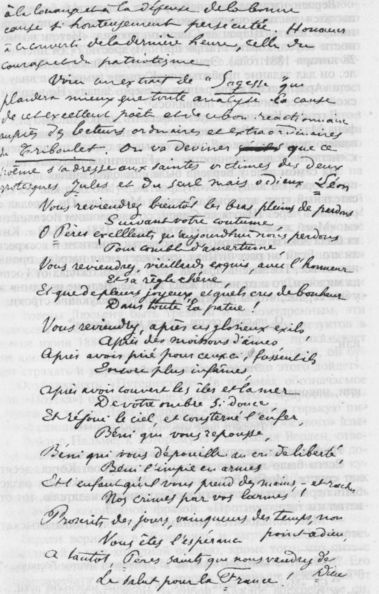 à la louange et à la défense de la bonne
cause si honteusement persécutée. Honneur
à ce converti de la dernière heure, celle du
courage et du patriotisme.
Voici un extrait de "Sagesse" qui
plaidera mieux que toute analyse la cause
de cet excellent poète et de ce bon réactionnaire
auprès des lecteurs ordinaires et extraordinaires
du Triboulet. On va deviner que ce
poème s'adresse aux saintes victimes des deux
grotesques Jules et du seul mais odieux Léon
Vous reviendrez bientôt les bras pleins de pardons
Suivant votre coutume
O Pères excellents qu'aujourd'hui nous perdons
Pour comble d'amertume
Vous reviendrez, vieillards exquis, avec l'honneur
Et sa règle chérie
Et que de pleurs joyeux, et quels cris de bonheur
Dans toute la patrie !
Vous reviendrez, après ces glorieux exils
Après des moissons d'âmes
Après avoir prié pour ceux-ci, fussent-ils
Encore plus infâmes
Après avoir couvert les îles et la mer
De votre ombre si douce
Et réjoui le ciel, et consterné l'enfer,
Béni qui vous repousse,
Béni qui vous dépouille au cri de liberté
Béni l'impie en armes
Et l'enfant qu'il vous prend des mains - et
Nos crimes par vos larmes !
Proscrits des jours, vainqueurs des temps, non point adieu,
Vous êtes l'espérance
A tantôt, Pères saints qui nous vaudrez de Dieu
Le salut pour la France !